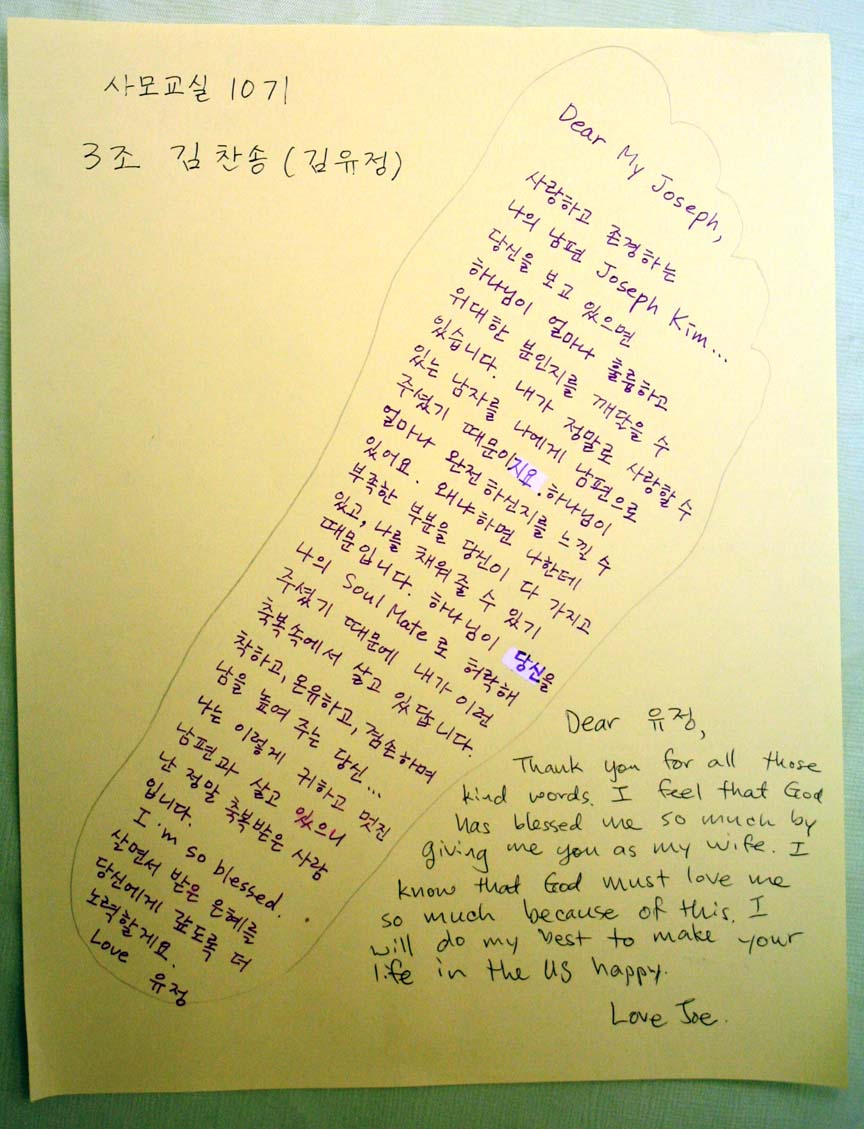 사모교실 10기
3조 김찬송 (김유정)
Dear My Joseph,
사랑하고 존경하는
나의 남편 Joseph Kim...
당신을 보고 있으면
하나님이 얼마나 훌륭하고
위대한 분인지를 깨달을 수
있습니다. 내가 정말로 사랑할 수
있는 남자를 나에게 남편으로
주셨기 때문이지요. 하나님이
얼마나 완전하신지를 느낄 수
있어요. 왜냐하면 나한테
부족한 부분을 당신이 다 가지고
있고, 나를 채워줄 수 있기
때문입니다. 하나님이 당신을
나의 Soul Mate로 허락해
주셨기 때문에 내가 이런
축복속에서 살고 있답니다.
착하고, 온유하고, 겸손하며
남을 높여 주는 당신...
나는 이렇게 귀하고 멋진
남편과 살고 있으니
난 정말 축복받은 사람
입니다.
I'm so blessed.
살면서 받은 은혜를
당신에게 갚도록 더
노력할게요.
Love 유정
Dear 유정,
Thank you for all those
kind words. I feel that God
has blessed me so much by
giving me you as my wife. I
know that God must love me
so much because of this. I
will do my best to make your
life in the US happy.
Love Joe.